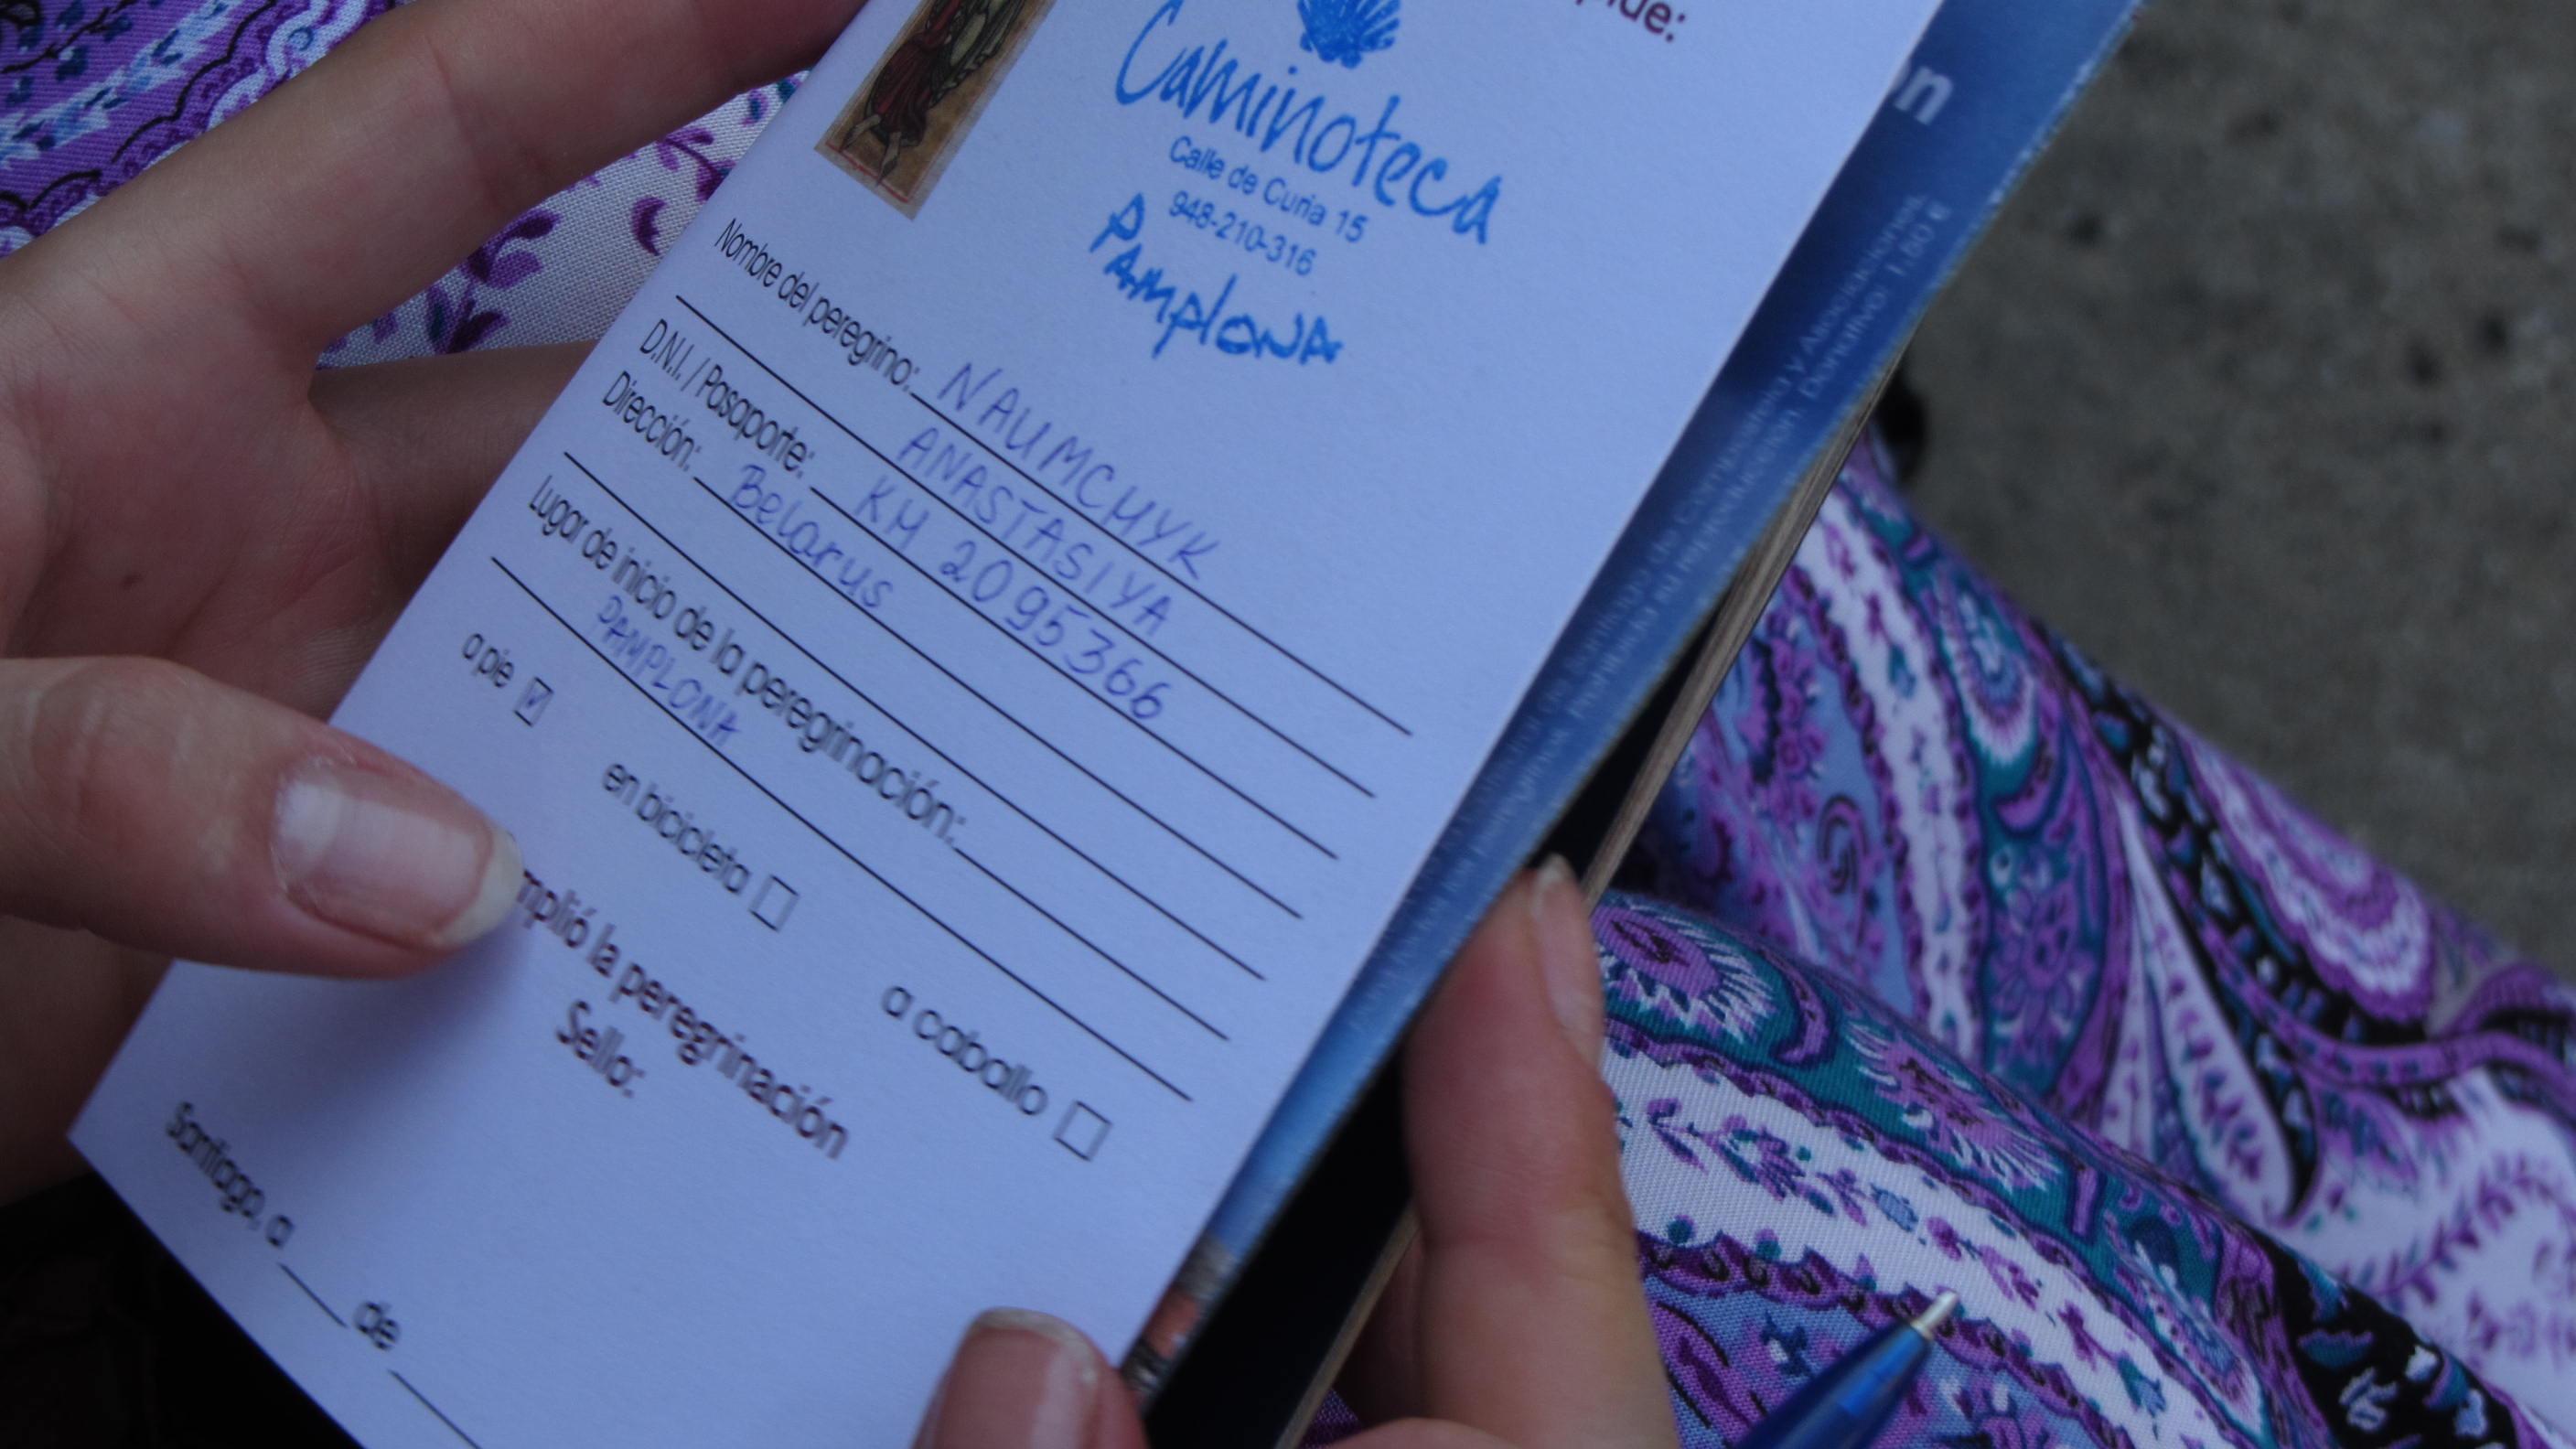 Caminoteca
Calle de Curia 15
948-210-316
PAmplonA
Nombre del peregrino: NAUMCHYK
ANASTASIYA
D.N.I. / Pasaporte: KH 2095366
Dirección: Belarus
Lugar de inicio de la peregrinación:
PAMPLONA
a pie
en bicicleta
a caballo
la peregrinación
Sello:
Santiago, a de
Donativo: 1,50 €